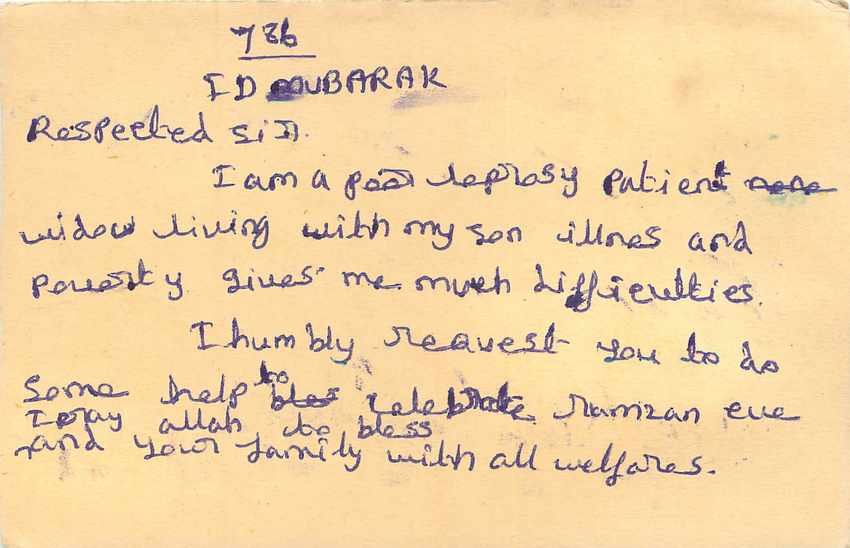 786
ID MUBARAK
Respected sir.
I am a poor leprosy patient
widow living with my son illnes and
poverty gives me much difficulties.
I humbly reauest you to do
some help to celebrate ramzan eve
I pray allah to bless
and your family with all welfares.